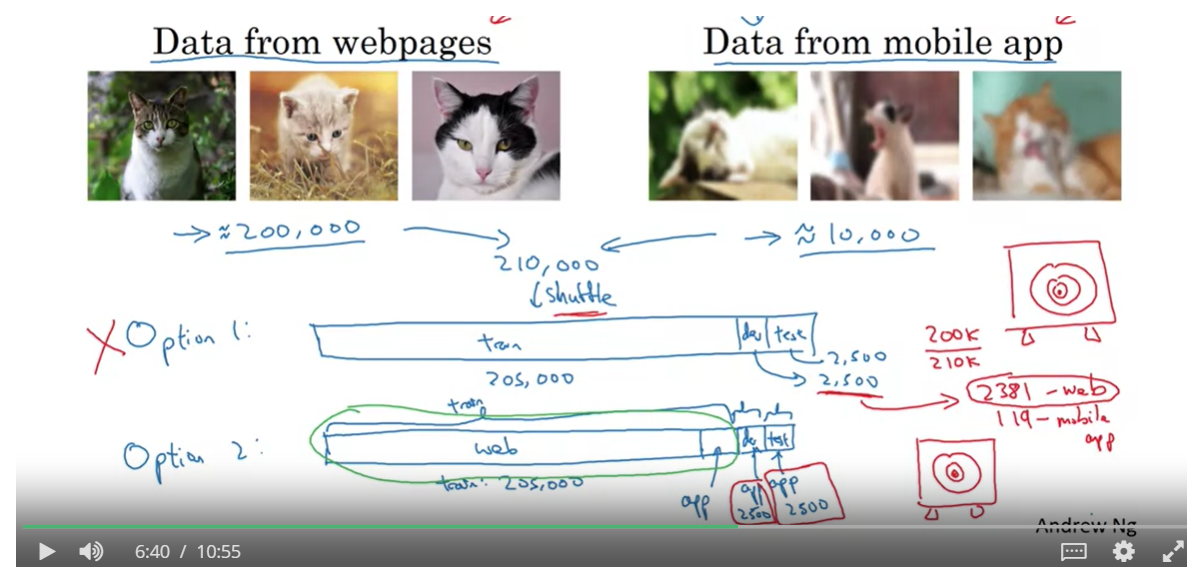 Data from webpages
Data from mobile app
→ ≈200,000
→ ≈10,000
210,000
↓ shuffle
X Option 1:
train
dev
test
205,000
2,500
2,500
200K
210K
2381 - web
119 - mobile
app
train
Option 2:
web
dev
test
train: 205,000
app
app
2500
app
2500
Andrew Ng
6:40 / 10:55